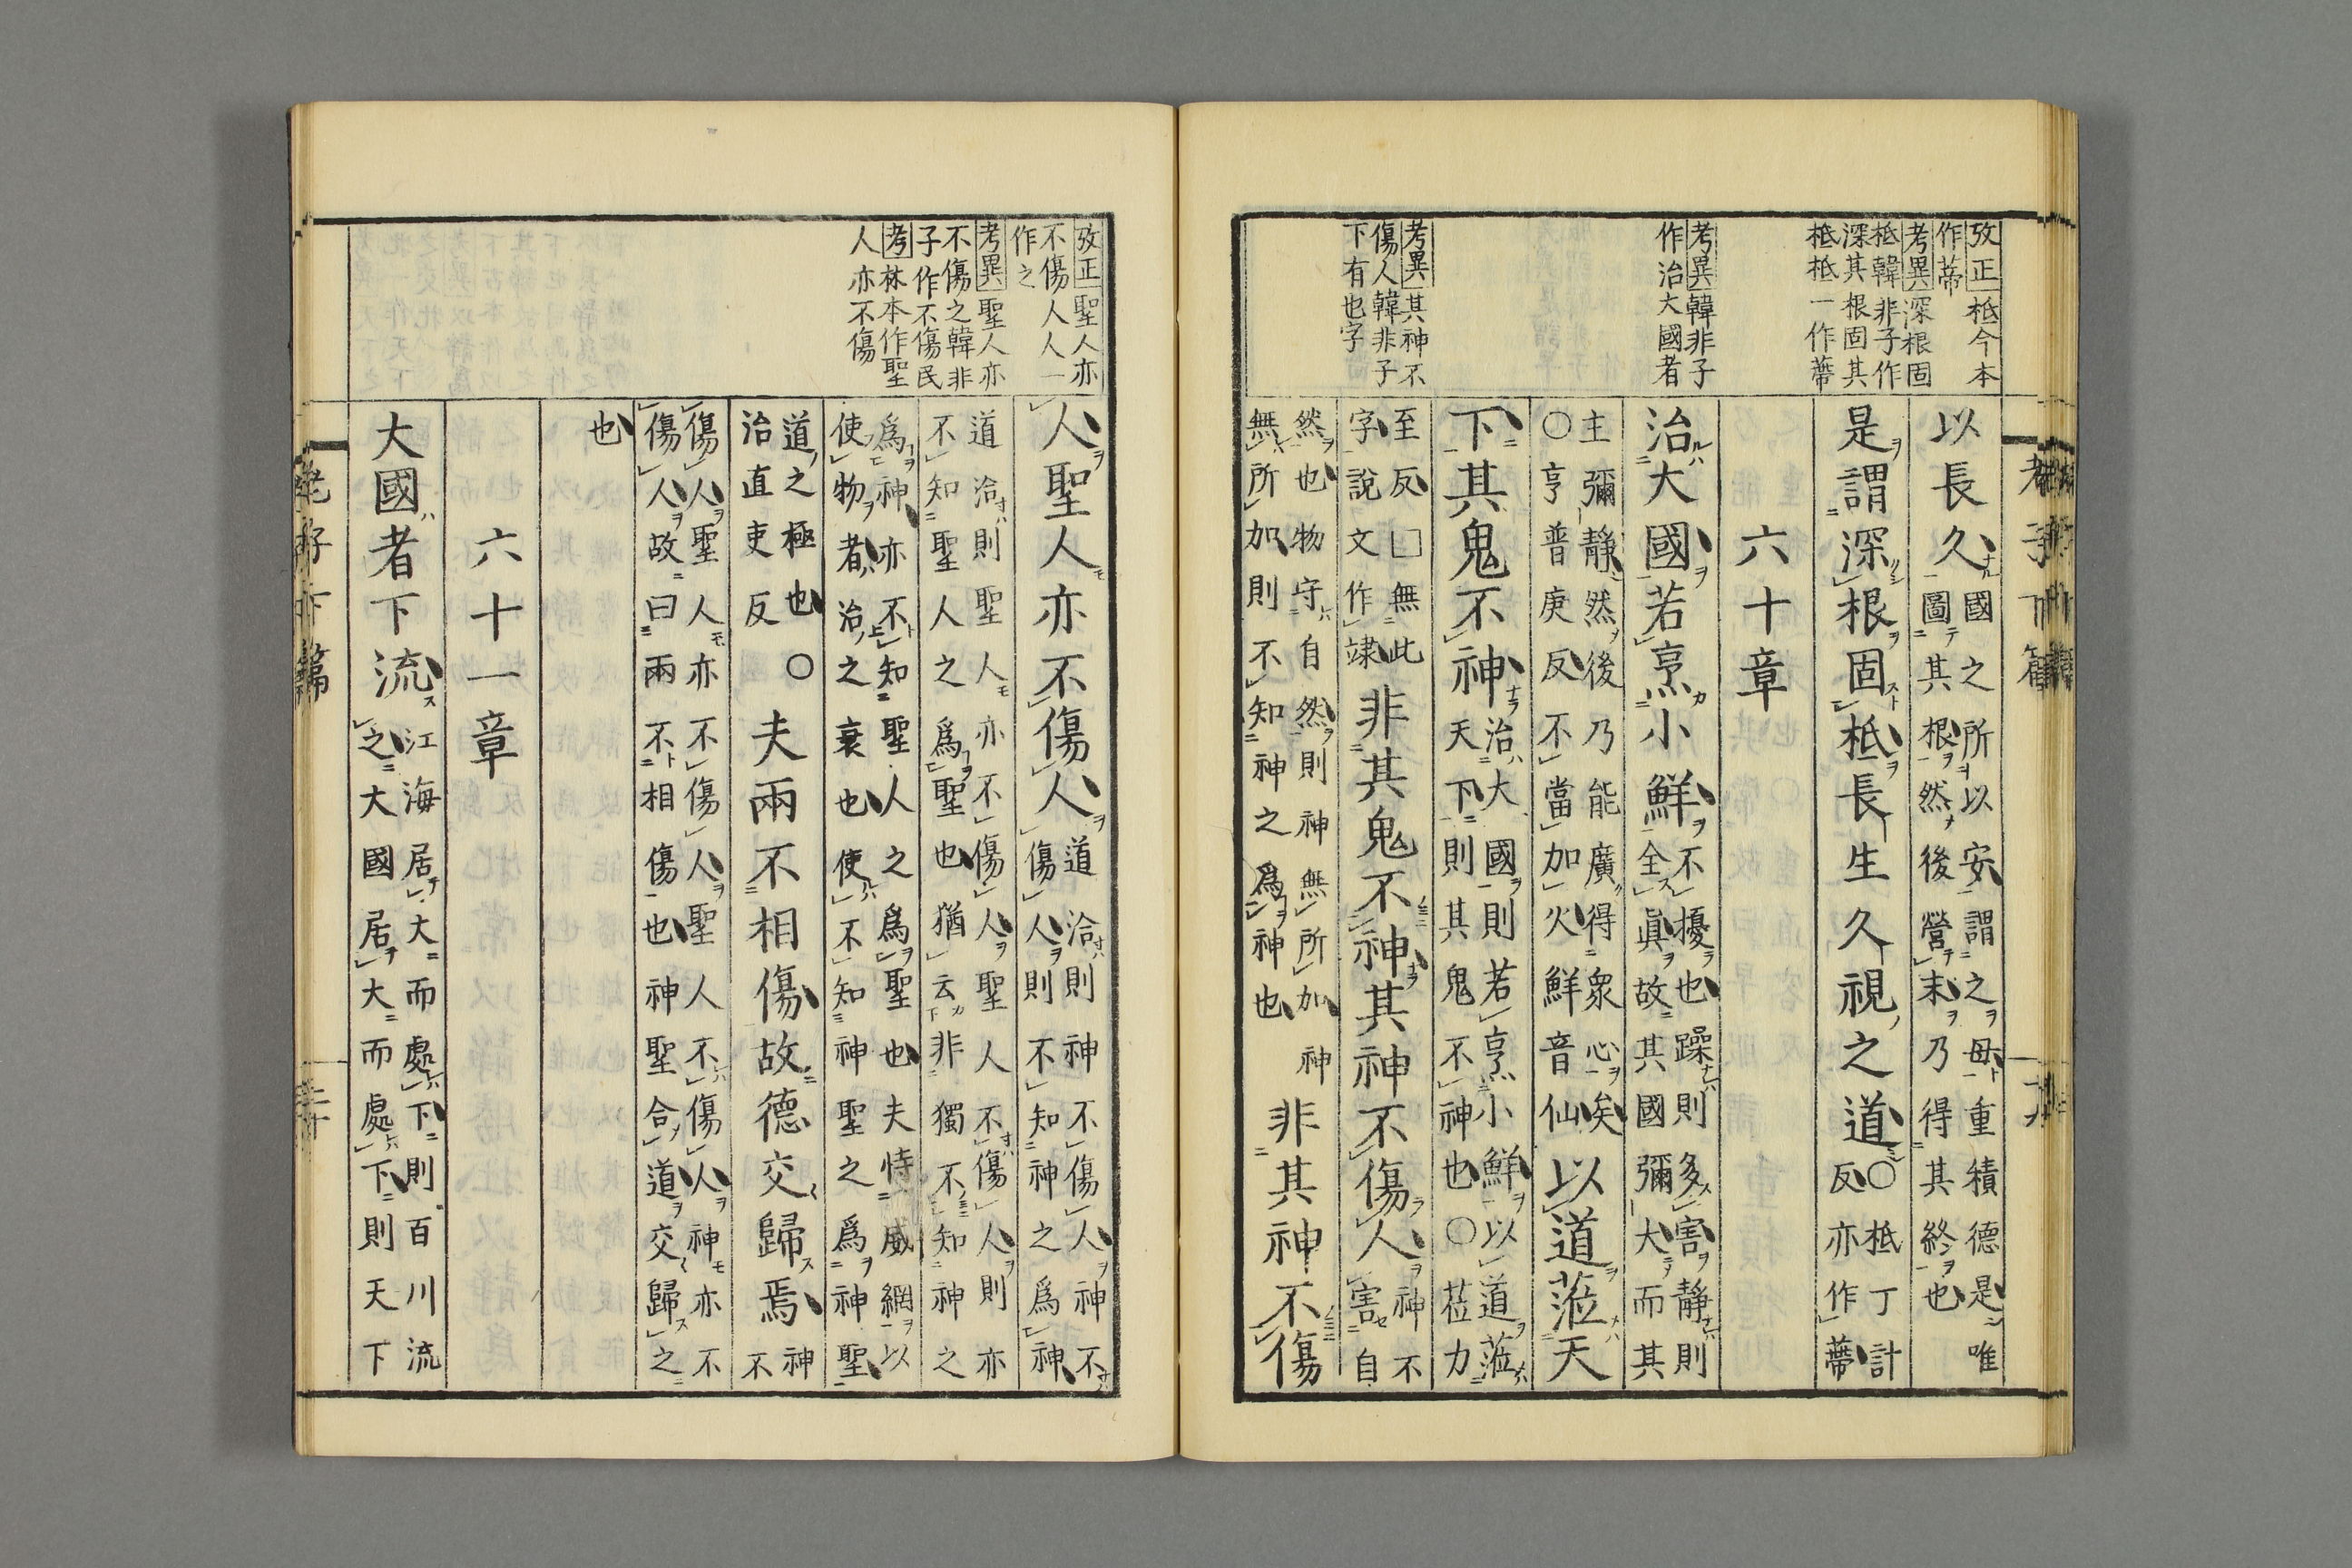 攷正柢今本
作蔕
考異深根固
柢韓非子作
深其根固其
柢柢一作蔕
考異韓非子
作治大國者
考異其神不
傷人韓非子
下有也字
以長久國之所以安謂之母重積德是唯
圖其根然後營末乃得其終也
是謂深根固柢長生久視之道○柢丁計
反亦作蔕
六十章
治大國若烹小鮮不擾也躁則多害靜則
全眞故其國彌大而其
主彌靜然後乃能廣得衆心矣
○亨普庚反不當加火鮮音仙以道蒞天
下其鬼不神治大國則若烹小鮮以道蒞
天下則其鬼不神也○莅力
至反□無此
字說文作𥩟非其鬼不神其神不傷人神不
害自
然也物守自然則神無所加神
無所加則不知神之爲神也非其神不傷
攷正聖人亦
不傷人人一
作之
考異聖人亦
不傷之韓非
子作不傷民
考林本作聖
人亦不傷
人聖人亦不傷人道洽則神不傷人神不
傷人則不知神之爲神
道洽則聖人亦不傷人聖人不傷人則亦
不知聖人之爲聖也猶云非獨不知神之
爲神亦不知聖人之爲聖也夫恃威網以
使物者治之衰也使不知神聖之爲神聖
道之極也○
治直吏反夫兩不相傷故德交歸焉神
不
傷人聖人亦不傷人聖人不傷人神亦不
傷人故曰兩不相傷也神聖合道交歸之
也
六十一章
大國者下流江海居大而處下則百川流
之大國居大而處下則天下
老子下篇